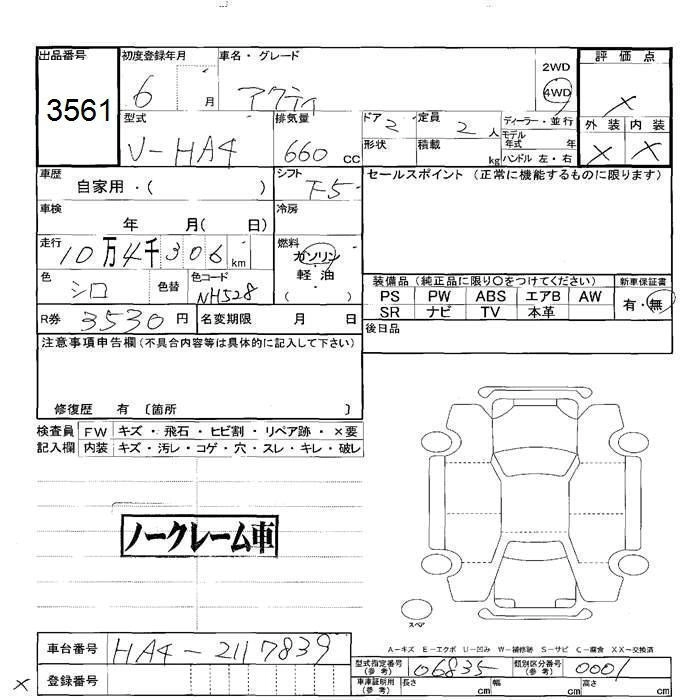 出品番号 初度登録年月 車名・グレード 2WD 評価点
3561 6 月 アクティ 4WD ×
型式 排気量 ドア 2 定員 2 人 ディーラー・並行 外装 内装
V-HA4 660 CC 形状 積載 kg モデル年式 年 × ×
ハンドル 左・右
車歴 自家用・( ) シフト F5 セールスポイント (正常に機能するものに限ります)
車検 年 月( 日) 冷房
走行 10万4千306 km 燃料 ガソリン・軽油 ( )
色 シロ 色替 色コード NH528
装備品 (純正品に限り○をつけてください) 新車保証書
PS PW ABS エアB AW 有・無
SR ナビ TV 本革
R券 3530 円 名変期限 月 日 後日品
注意事項申告欄 (不具合内容等は具体的に記入して下さい)
修復歴 有 〔箇所 〕
検査員 FW キズ・飛石・ヒビ割・リペア跡・×要
記入欄 内装 キズ・汚レ・コゲ・穴・スレ・キレ・破レ
ノークレーム車
スペア
A-キズ E-エクボ U-凹み W-補修跡 S-サビ C-腐食 XX-交換済
車台番号 HA4-2117839 型式指定番号 (参考) 06835 類別区分番号 (参考) 0001
× 登録番号 車庫証明用 (参考) 長さ cm 幅 cm 高さ cm